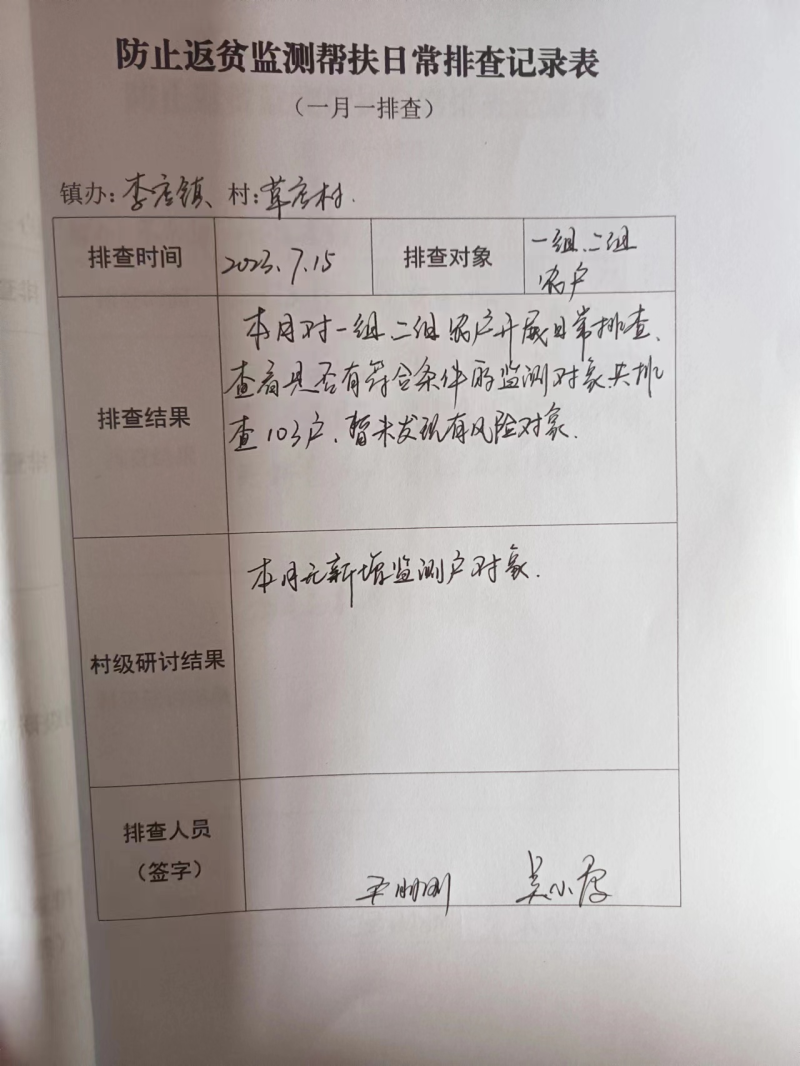 防止返贫监测帮扶日常排查记录表
（一月一排查）
镇办：李店镇、村：草店村.
排查时间 2023.7.15 排查对象 一组、二组
农户
本月对一组、二组农户开展日常排查、
查看是否有符合条件的监测对象.共排
排查结果
查103户、暂未发现有风险对象.
本月无新增监测户对象.
村级研讨结果
排查人员
（签字）